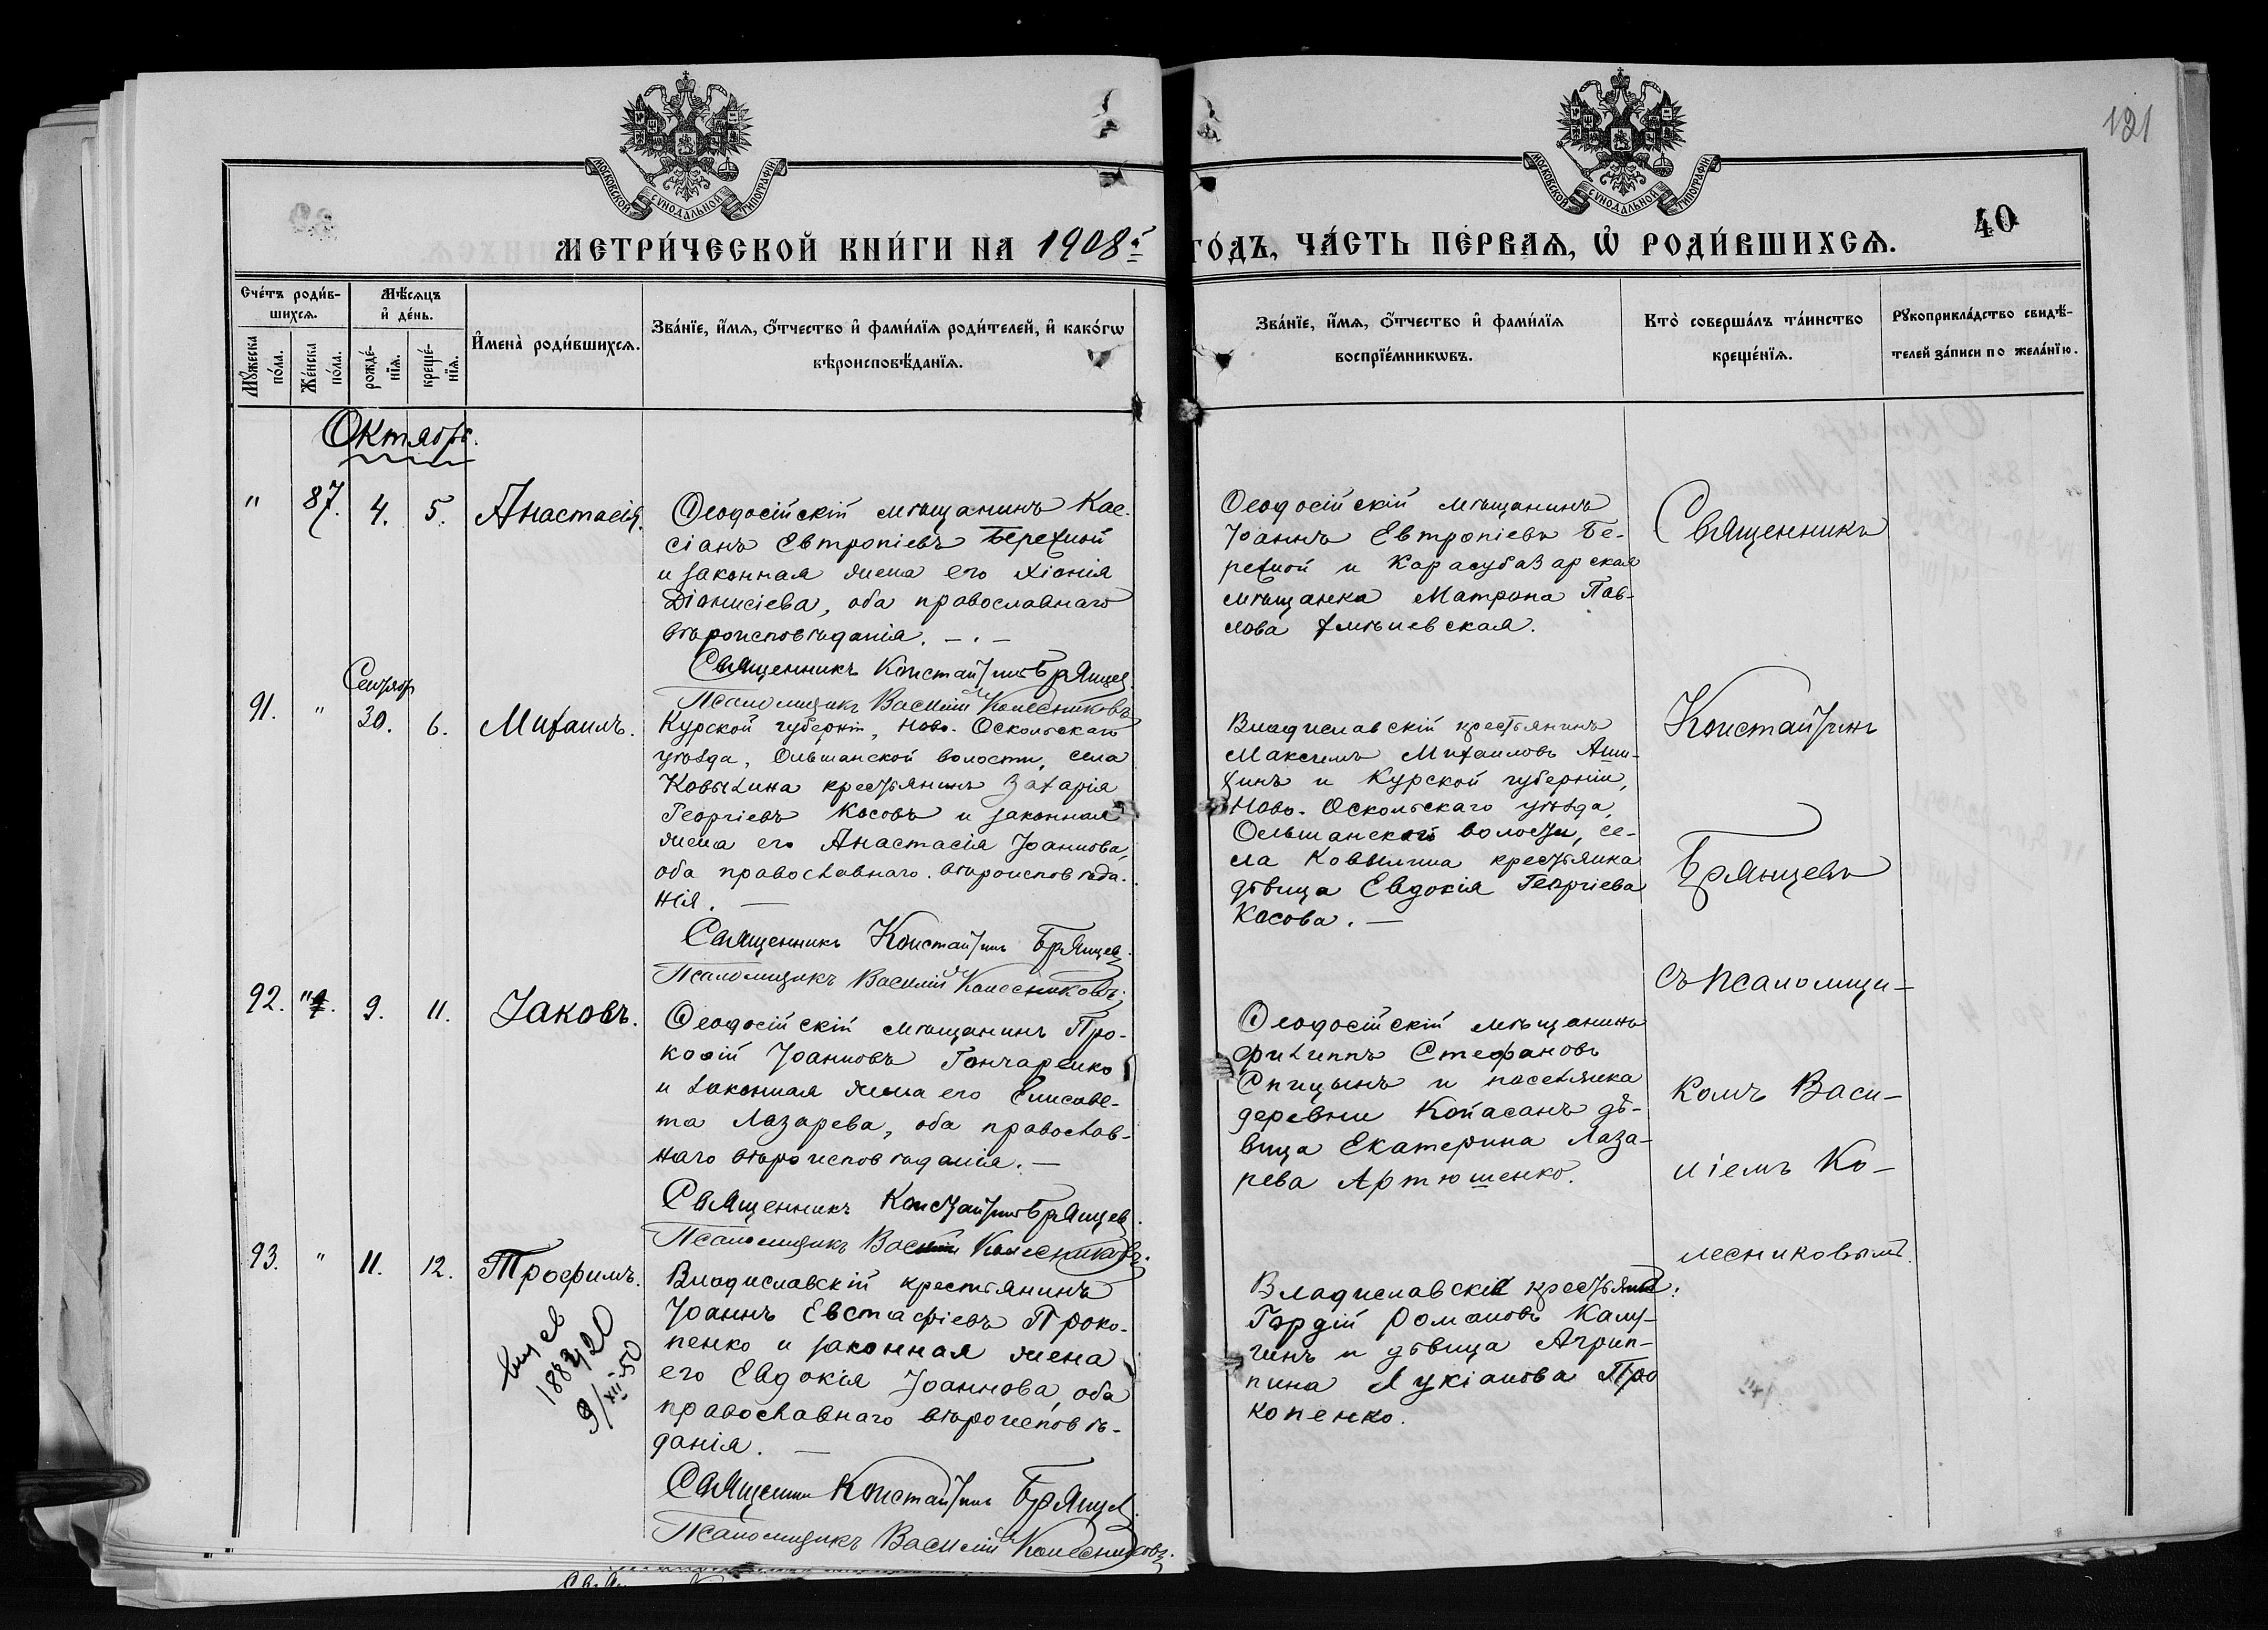 121
МОСКОВСКОЙ СѴНОДАЛЬНОЙ ТИПОГРАФІИ
МОСКОВСКОЙ СѴНОДАЛЬНОЙ ТИПОГРАФІИ
МЕТРИ́ЧЕСКОЙ КНИ́ГИ НА 1908й ГО́ДЪ, ЧА́СТЬ ПЕ́РВАѦ, Ѽ РОДИ́ВШИХСѦ.
40
Счétъ роди́в-
шихсѧ.
Мѣ́сѧцъ
и҆ де́нь.
Мꙋ́жеска
по́ла.
Же́нска
по́ла.
рожде́-
нїѧ.
креще́-
нїѧ.
И҆мена̀ роди́вшихсѧ.
Зва́нїе, и҆́мѧ, ѻ҆́тчество и҆ фами́лїѧ роди́телей, и҆ како́гѡ
вѣроисповѣ́данїѧ.
Зва́нїе, и҆́мѧ, ѻ҆́тчество и҆ фами́лїѧ
воспрїе́мникѡвъ.
Кто̀ соверша́лъ та́инство
креще́нїѧ.
Рꙋкоприкла́дство свидѣ́-
телей за́писи по жела́нїю.
Октябрь.
" 87. 4. 5. Анастасія.
Ѳеодосійскій мѣщанинъ Кас-
сіанъ Евтропіевъ Бережной
и законная жена его Хіонія
Діонисіева, оба православнаго
вѣроисповѣданія. —.—
Священникъ Константинъ Брянцев
Псаломщикъ Василій Колесниковъ
Ѳеодосійскій мѣщанинъ
Іоаннъ Евтропіевъ Бе-
режной и Карасубазарская
мѣщанка Матрона Пав-
лова Змѣиевская.
91. " Сентябр 30. 6. Михаилъ.
Курской губерніи, Ново-Оскольскаго
уѣзда, Ольшанской волости, села
Ковылина крестьянинъ Захарія
Георгіевъ Косовъ и законная
жена его Анастасія Іоаннова,
оба православнаго вѣроисповѣда-
нія. —
Священникъ Константинъ Брянцев
Псаломщикъ Василій Колесниковъ.
Владиславскій крестьянинъ
Максимъ Михаиловъ
и Курской губерніи,
Ново-Оскольскаго уѣзда,
Ольшанской волости, се-
ла Ковылина крестьянка
дѣвица Евдокія Георгіева
Косова. —
92. " 9. 11. Іаковъ.
Ѳеодосійскій мѣщанинъ Про-
кофій Іоанновъ Гончаренко
и законная жена его Елисаве-
та Лазарева, оба православ-
наго вѣроисповѣданія. —
Священникъ Константинъ Брянцев
Псаломщикъ Василій Колесниковъ.
Ѳеодосійскій мѣщанинъ
Филиппъ Стефановъ
Спицынъ и поселянка
деревни Копасанъ дѣ-
вица Екатерина Лаза-
рева Артюшенко.
93. " 11. 12. Трофимъ.
Владиславскій крестьянинъ
Іоаннъ Евстафіевъ Проко-
пенко и законная жена
его Евдокія Іоаннова, оба
православнаго вѣроисповѣ-
данія. —
Священникъ Константинъ Брянцев
Псаломщикъ Василій Колесниковъ.
9/XII-50
Гордій Романовъ
и дѣвица Агрип-
пина Лукіанова Про
копенко.
Священникъ
Константинъ
Брянцевъ
съ псаломщи-
комъ Васи-
ліемъ Ко-
лесниковымъ.